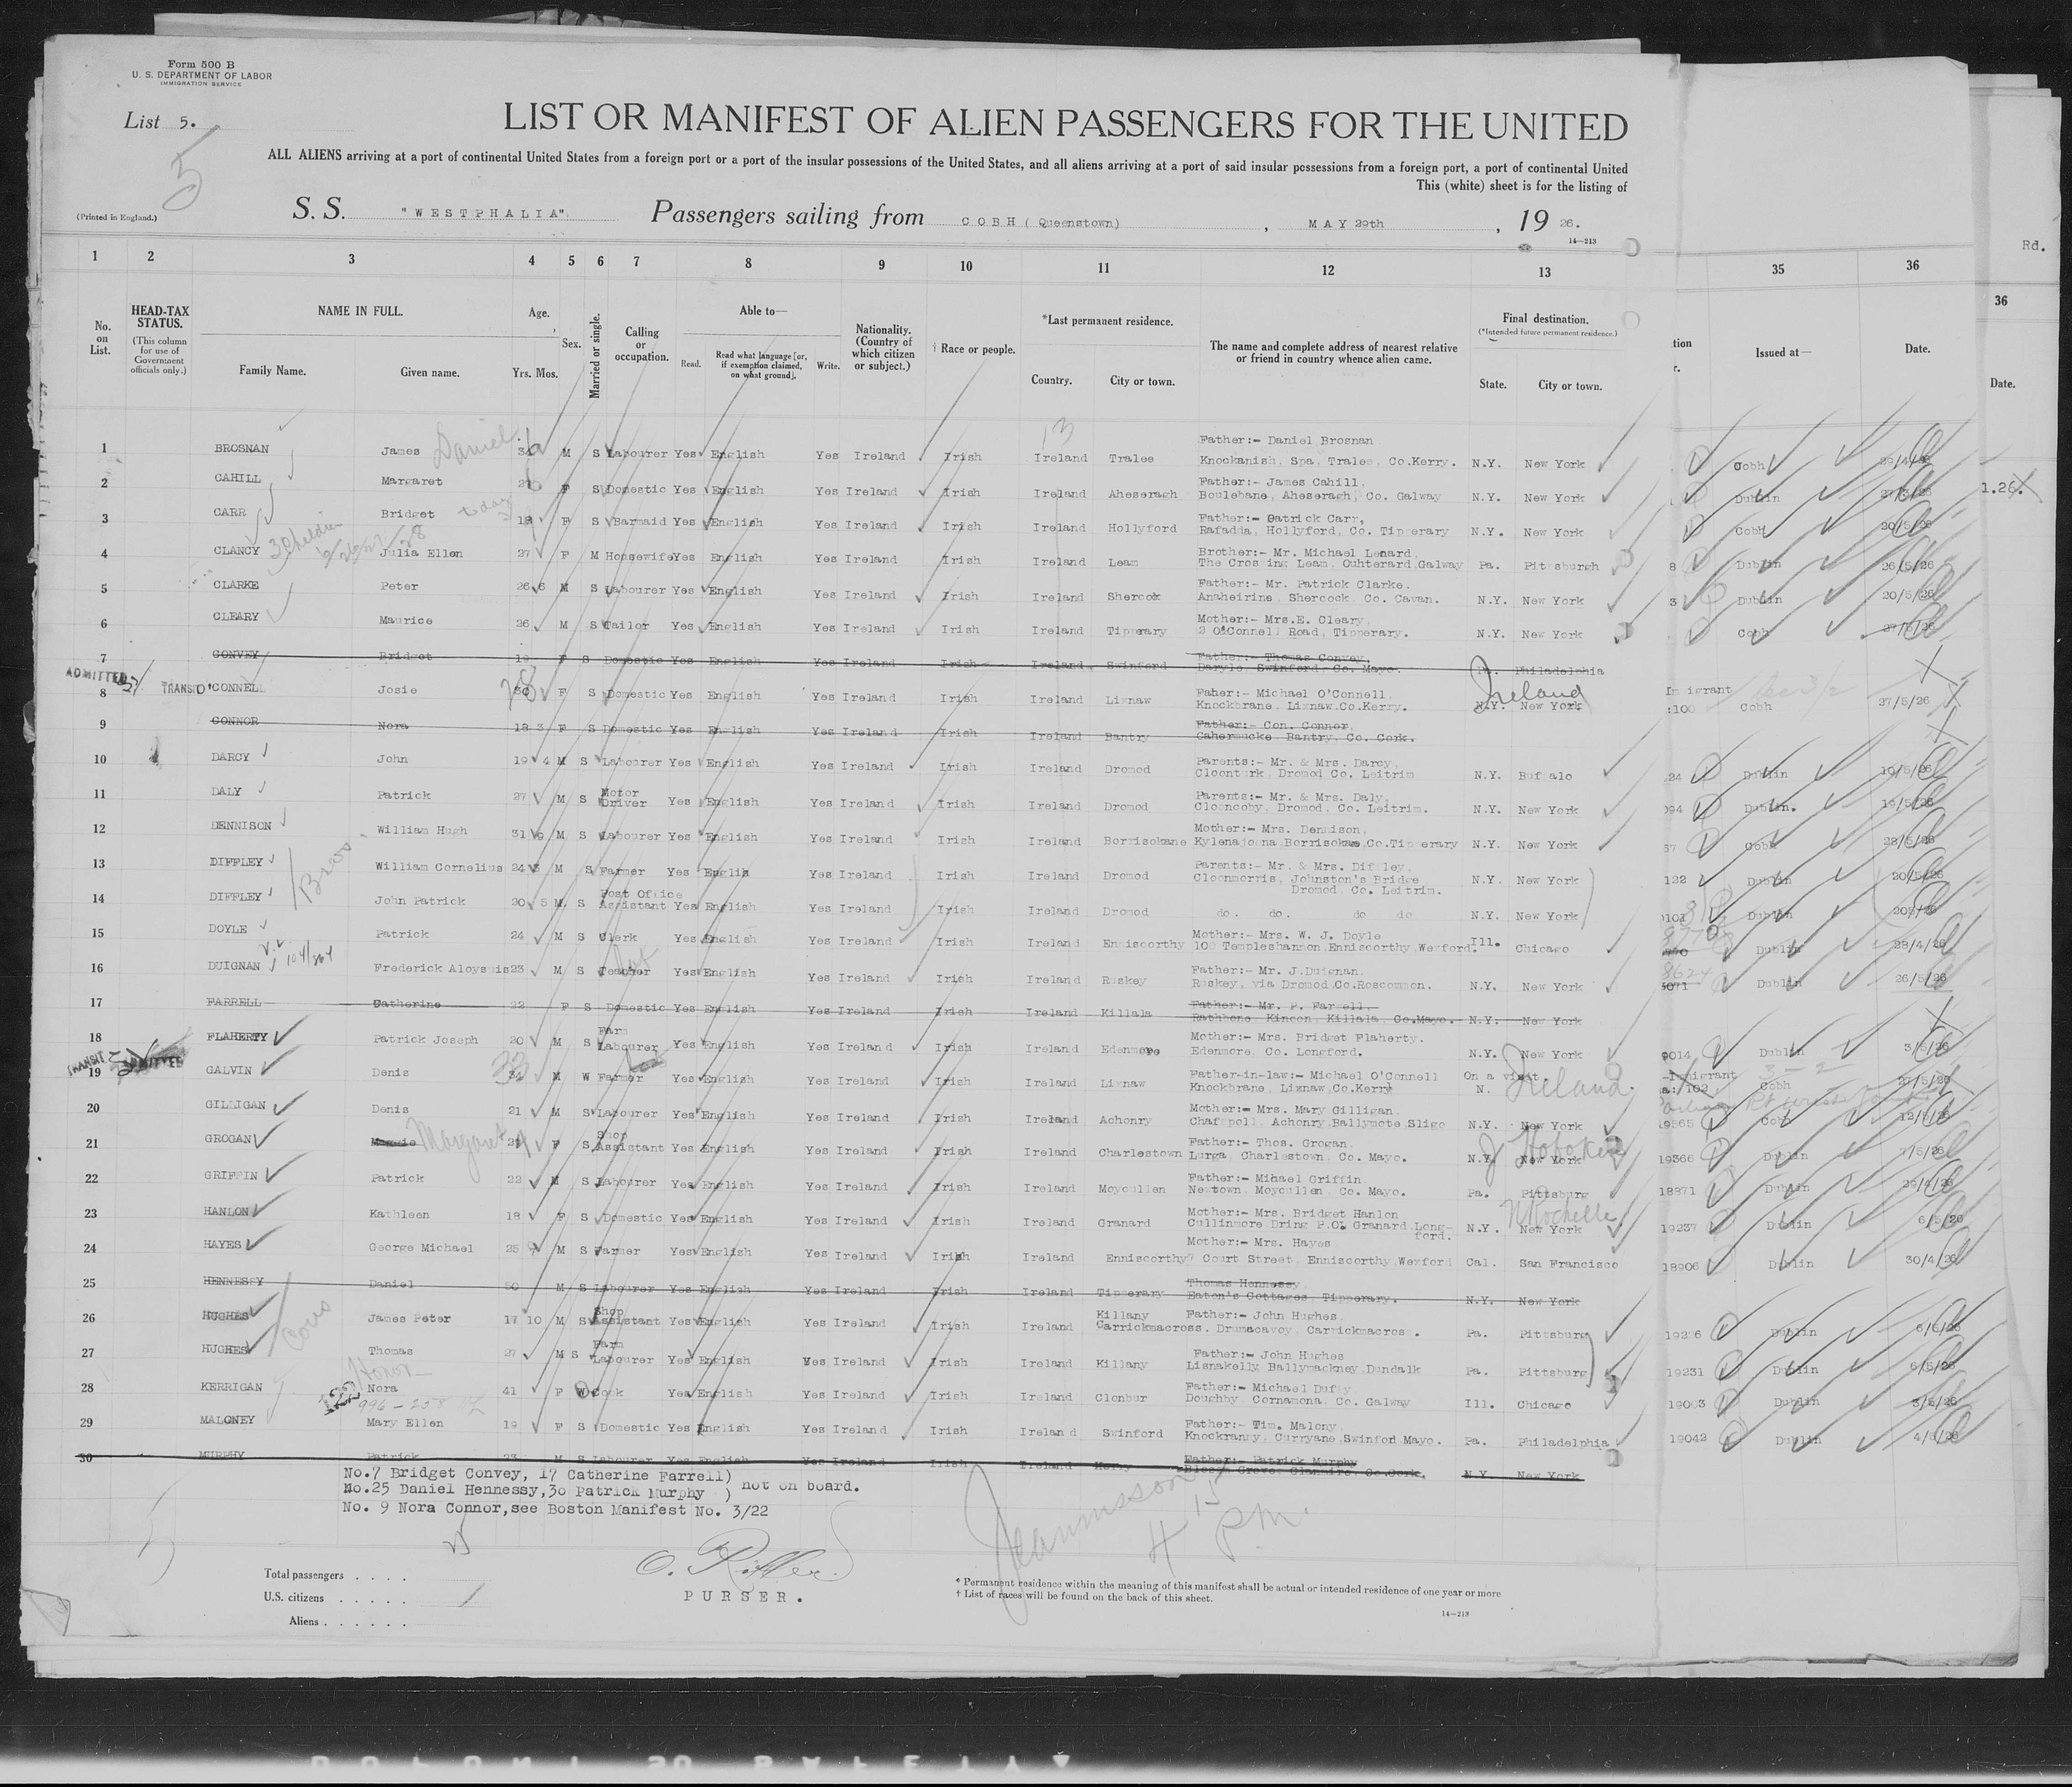 Form 500 B
U. S. DEPARTMENT OF LABOR
IMMIGRATION SERVICE
List 5.
5
LIST OR MANIFEST OF ALIEN PASSENGERS FOR THE UNITED
ALL ALIENS arriving at a port of continental United States from a foreign port or a port of the insular possessions of the United States, and all aliens arriving at a port of said insular possessions from a foreign port, a port of continental United
This (white) sheet is for the listing of
(Printed in England.)
S. S. "WESTPHALIA" Passengers sailing from COBH (Queenstown), MAY 29th, 19 26.
14—213
Rd.
1 2 3 4 5 6 7 8 9 10 11 12 13 35 36
No. on List.
HEAD-TAX STATUS.
(This column for use of Government officials only.)
NAME IN FULL.
Family Name. Given name.
Age.
Yrs. Mos.
Sex.
Married or single.
Calling or occupation.
Able to—
Read. Read what language [or, if exemption claimed, on what ground]. Write.
Nationality. (Country of which citizen or subject.)
† Race or people.
*Last permanent residence.
Country. City or town.
The name and complete address of nearest relative or friend in country whence alien came.
Final destination.
(*Intended future permanent residence.)
State. City or town.
Issued at—
Date.
36
Date.
1 BROSNAN James Daniel M S Labourer Yes English Yes Ireland Irish Ireland Tralee Father:- Daniel Brosnan Knockanish, Spa, Tralee, Co.Kerry. N.Y. New York Cobh
2 CAHILL Margaret F S Domestic Yes English Yes Ireland Irish Ireland Aheseragh Father:- James Cahill, Boulebane, Aheseragh, Co. Galway N.Y. New York Dublin
1.26.
3 CARR Bridget F S Barmaid Yes English Yes Ireland Irish Ireland Hollyford Father:- Patrick Carr, Rafadda, Hollyford, Co. Tipperary N.Y. New York Cobh 20/5/26
3 Children
4 CLANCY Julia Ellen 27 F M Housewife Yes English Yes Ireland Irish Ireland Leam Brother:- Mr. Michael Lenard, The Crossing Leam, Ouhterard, Galway Pa. Pittsburgh Dublin 26/5/26
5 CLARKE Peter 26 6 M S Labourer Yes English Yes Ireland Irish Ireland Shercock Father:- Mr. Patrick Clarke. Anaheirine, Shercock, Co. Cavan. N.Y. New York Dublin 20/5/26
6 CLEARY Maurice 26 M S Tailor Yes English Yes Ireland Irish Ireland Tipperary Mother:- Mrs.E. Cleary, 2 O'Connell Road, Tipperary. N.Y. New York Cobh
7 CONVEY Bridget 19 F S Domestic Yes English Yes Ireland Irish Ireland Swinford Father:- Thomas Convey, Daryle, Swinford, Co. Mayo. Pa. Philadelphia
ADMITTED
8 TRANSIT O'CONNELL Josie 28 F S Domestic Yes English Yes Ireland Irish Ireland Lixnaw Faher:- Michael O'Connell, Knockbrane, Lixnaw.Co.Kerry. N.Y. New York Ireland Immigrant :100 Cobh 27/5/26
9 CONNOR Nora 18 3 F S Domestic Yes English Yes Ireland Irish Ireland Bantry Father:- Con. Connor, Cahermucke, Bantry, Co. Cork.
10 DARCY John 19 4 M S Labourer Yes English Yes Ireland Irish Ireland Dromod Parents:- Mr. & Mrs. Darcy, Cloonturk, Dromod Co. Leitrim N.Y. Buffalo Dublin 19/5/26
11 DALY Patrick 27 M S Motor Driver Yes English Yes Ireland Irish Ireland Dromod Parents:- Mr. & Mrs. Daly, Clooncoby, Dromod, Co. Leitrim. N.Y. New York Dublin. 19/5/26
12 DENNISON William Hugh 31 9 M S Labourer Yes English Yes Ireland Irish Ireland Borrisokane Mother:- Mrs. Dennison, Kylenajoona, Borrisokane, Co.Tipperary N.Y. New York Cobh
13 DIFFLEY William Cornelius 24 3 M S Farmer Yes English Yes Ireland Irish Ireland Dromod Parents:- Mr. & Mrs. Diffley, Cloonmorris, Johnston's Bridge Dromod, Co. Leitrim. N.Y. New York Dublin 20/5/26
Bros
14 DIFFLEY John Patrick 20 5 M. S Post Office Assistant Yes English Yes Ireland Irish Ireland Dromod do. do. do do N.Y. New York Dublin
15 DOYLE Patrick 24 M S Clerk Yes English Yes Ireland Irish Ireland Enniscorthy Mother:- Mrs. W. J. Doyle 100 Templeshannon, Enniscorthy, Wexford. Ill. Chicago Dublin
16 DUIGNAN Frederick Aloysuis 23 M S Teacher Yes English Yes Ireland Irish Ireland Ruskey Father:- Mr. J.Duignan. Ruskey, via Dromod.Co.Roscommon. N.Y. New York Dublin 26/5/26
17 FARRELL Catherine 22 F S Domestic Yes English Yes Ireland Irish Ireland Killala Father:- Mr. P. Farrell. Rathbone, Kincon, Killala, Co.Mayo. N.Y. New York
18 FLAHERTY Patrick Joseph 20 M S Farm Labourer Yes English Yes Ireland Irish Ireland Edenmore Mother:- Mrs. Bridget Flaherty. Edenmore, Co. Longford. N.Y. New York Dublin
TRANSIT ADMITTED
19 GALVIN Denis 33 M W Farmer Yes English Yes Ireland Irish Ireland Lixnaw Father-in-law:- Michael O'Connell Knockbrane, Lixnaw,Co.Kerry On a visit N. Ireland. Immigrant Cobh 27/5/26
20 GILLIGAN Denis 21 M S Labourer Yes English Yes Ireland Irish Ireland Achonry Mother:- Mrs. Mary Gilligan. Achonry, Ballymote, Sligo N.Y. New York 19565 Cobh 12/5/26
21 GROGAN Margaret F S Shop Assistant Yes English Yes Ireland Irish Ireland Charlestown Father:- Thos. Grogan, Lurga, Charlestown, Co. Mayo. N.Y. New York Hoboken 19366 Dublin
22 GRIFFIN Patrick 22 M S Labourer Yes English Yes Ireland Irish Ireland Moycullen Father:- Mihael Griffin, Newtown, Moycullen, Co. Mayo. Pa. Pittsburg 18871 Dublin
23 HANLON Kathleen 18 F S Domestic Yes English Yes Ireland Irish Ireland Granard Mother:- Mrs. Bridget Hanlon Cullinmore Dring P.O. Granard Long-ford. N.Y. New York N Rochelle 19237 Dublin 6/5/26
24 HAYES George Michael 25 M S Farmer Yes English Yes Ireland Irish Ireland Enniscorthy Mother:- Mrs. Hayes 7 Court Street, Enniscorthy, Wexford Cal. San Francisco 18906 Dublin 30/4/26
25 HENNESSY Daniel 50 M S Labourer Yes English Yes Ireland Irish Ireland Tipperary Thomas Hennessy, Eaton's Cottages, Tipperary. N.Y. New York
26 HUGHES James Peter 17 10 M S Shop Assistant Yes English Yes Ireland Irish Ireland Killany Carrickmacross. Father:- John Hughes, Drumacavoy, Carrickmacross. Pa. Pittsburg Dublin 6/5/26
27 HUGHES Thomas 27 M S Farm Labourer Yes English Yes Ireland Irish Ireland Killany Father:- John Hughes Lisnakelly, Ballymackney, Dundalk Pa. Pittsburg 19231 Dublin 6/5/26
28 KERRIGAN Nora 41 F W Cook Yes English Yes Ireland Irish Ireland Clonbur Father:- Michael Duffy Doughby, Cornamona, Co. Galway Ill. Chicago 19003 Dublin
29 MALONEY Mary Ellen 19 F S Domestic Yes English Yes Ireland Irish Ireland Swinford Father:- Tim. Malony, Knockranny, Curryane, Swinford, Mayo. Pa. Philadelphia 19042 Dublin
30 MURPHY Patrick 23 M S Labourer Yes English Yes Ireland Irish Ireland Father:- Patrick Murphy Grove, Glanmire, Co.Cork. N.Y. New York
No.7 Bridget Convey, 17 Catherine Farrell)
No.25 Daniel Hennessy,30 Patrick Murphy ) not on board.
No. 9 Nora Connor,see Boston Manifest No. 3/22
4 15 P.M.
Total passengers . . . .
U.S. citizens . . . . .
Aliens . . . . . .
PURSER.
* Permanent residence within the meaning of this manifest shall be actual or intended residence of one year or more
† List of races will be found on the back of this sheet.
14—213